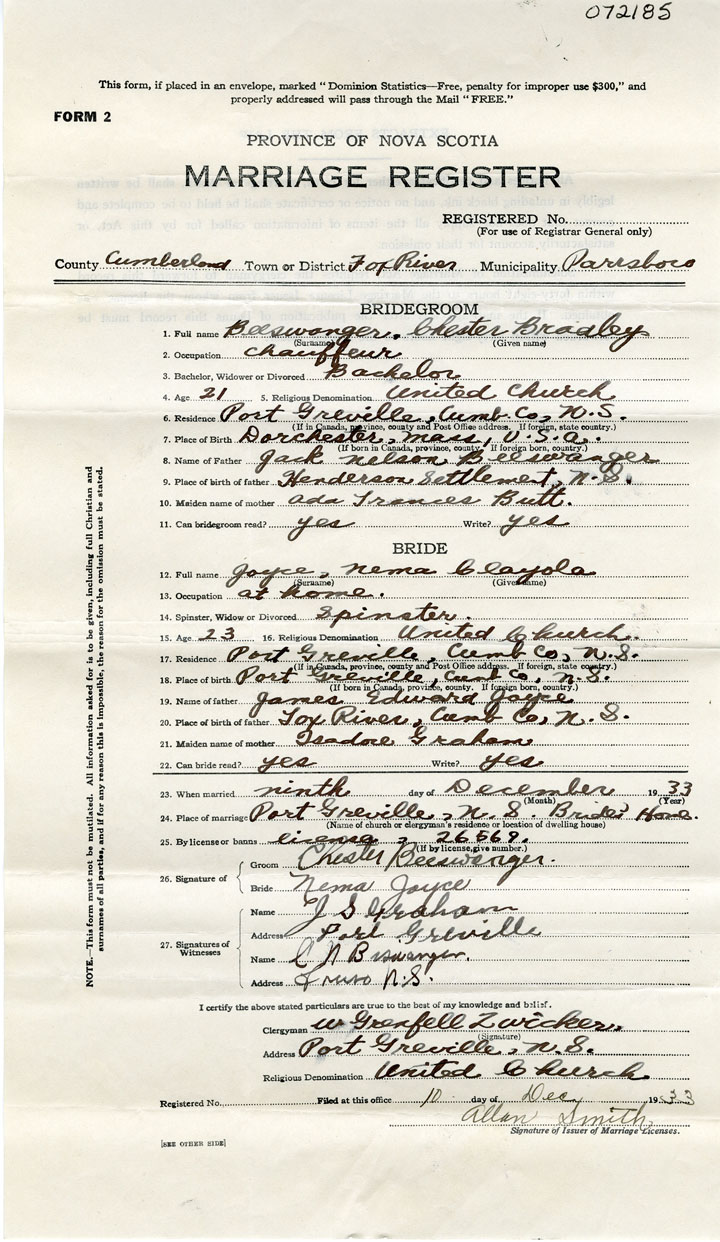 072185
This form, if placed in an envelope, marked "Dominion Statistics—Free, penalty for improper use $300," and
properly addressed will pass through the Mail "FREE."
FORM 2
PROVINCE OF NOVA SCOTIA
MARRIAGE REGISTER
REGISTERED No.
(For use of Registrar General only)
County Cumberland Town or District Fox River Municipality Parrsboro
BRIDEGROOM
1. Full name Beeswanger, Chester Bradley
(Surname) (Given name)
2. Occupation chauffeur
3. Bachelor, Widower or Divorced Bachelor
4. Age 21 5. Religious Denomination United Church
6. Residence Port Greville, Cumb. Co, N.S.
(If in Canada, province, county and Post Office address. If foreign, state country.)
7. Place of Birth Dorchester, Mass, U.S.A.
(If born in Canada, province, county. If foreign born, country.)
8. Name of Father Jack Nelson Beeswanger
9. Place of birth of father Henderson Settlement, N.S.
10. Maiden name of mother Ada Frances Butt
11. Can bridegroom read? yes Write? yes
BRIDE
12. Full name Joyce, Nema Clayola
(Surname) (Given name)
13. Occupation at home.
14. Spinster, Widow or Divorced Spinster.
15. Age 23 16. Religious Denomination United Church.
17. Residence Port Greville, Cumb Co, N.S.
(If in Canada, province, county and Post Office address. If foreign, state country.)
18. Place of birth Port Greville, Cumb Co, N.S.
(If born in Canada, province, county. If foreign born, country.)
19. Name of father James Edward Joyce
20. Place of birth of father Fox River, Cumb Co, N.S.
21. Maiden name of mother Isadore Graham
22. Can bride read? yes Write? yes
23. When married ninth day of December 1933
(Month) (Year)
24. Place of marriage Port Greville, N.S. Brides' Home.
(Name of church or clergyman's residence or location of dwelling house)
25. By license or banns license, 26569.
(If by license, give number.)
26. Signature of
Groom Chester Beeswanger.
Bride Nema Joyce
27. Signatures of Witnesses
Name J S Graham
Address Port Greville
Name C N Beswanger.
Address Truro N.S.
I certify the above stated particulars are true to the best of my knowledge and belief.
Clergyman W Grenfell Zwicker,
(Signature)
Address Port Greville, N.S.
Religious Denomination United Church
Registered No. Filed at this office 10 day of Dec 1933
Allan Smith
Signature of Issuer of Marriage Licenses.
[SEE OTHER SIDE]
NOTE.—This form must not be mutilated. All information asked for is to be given, including full Christian and
surnames of all parties, and if for any reason this is impossible, the reason for the omission must be stated.